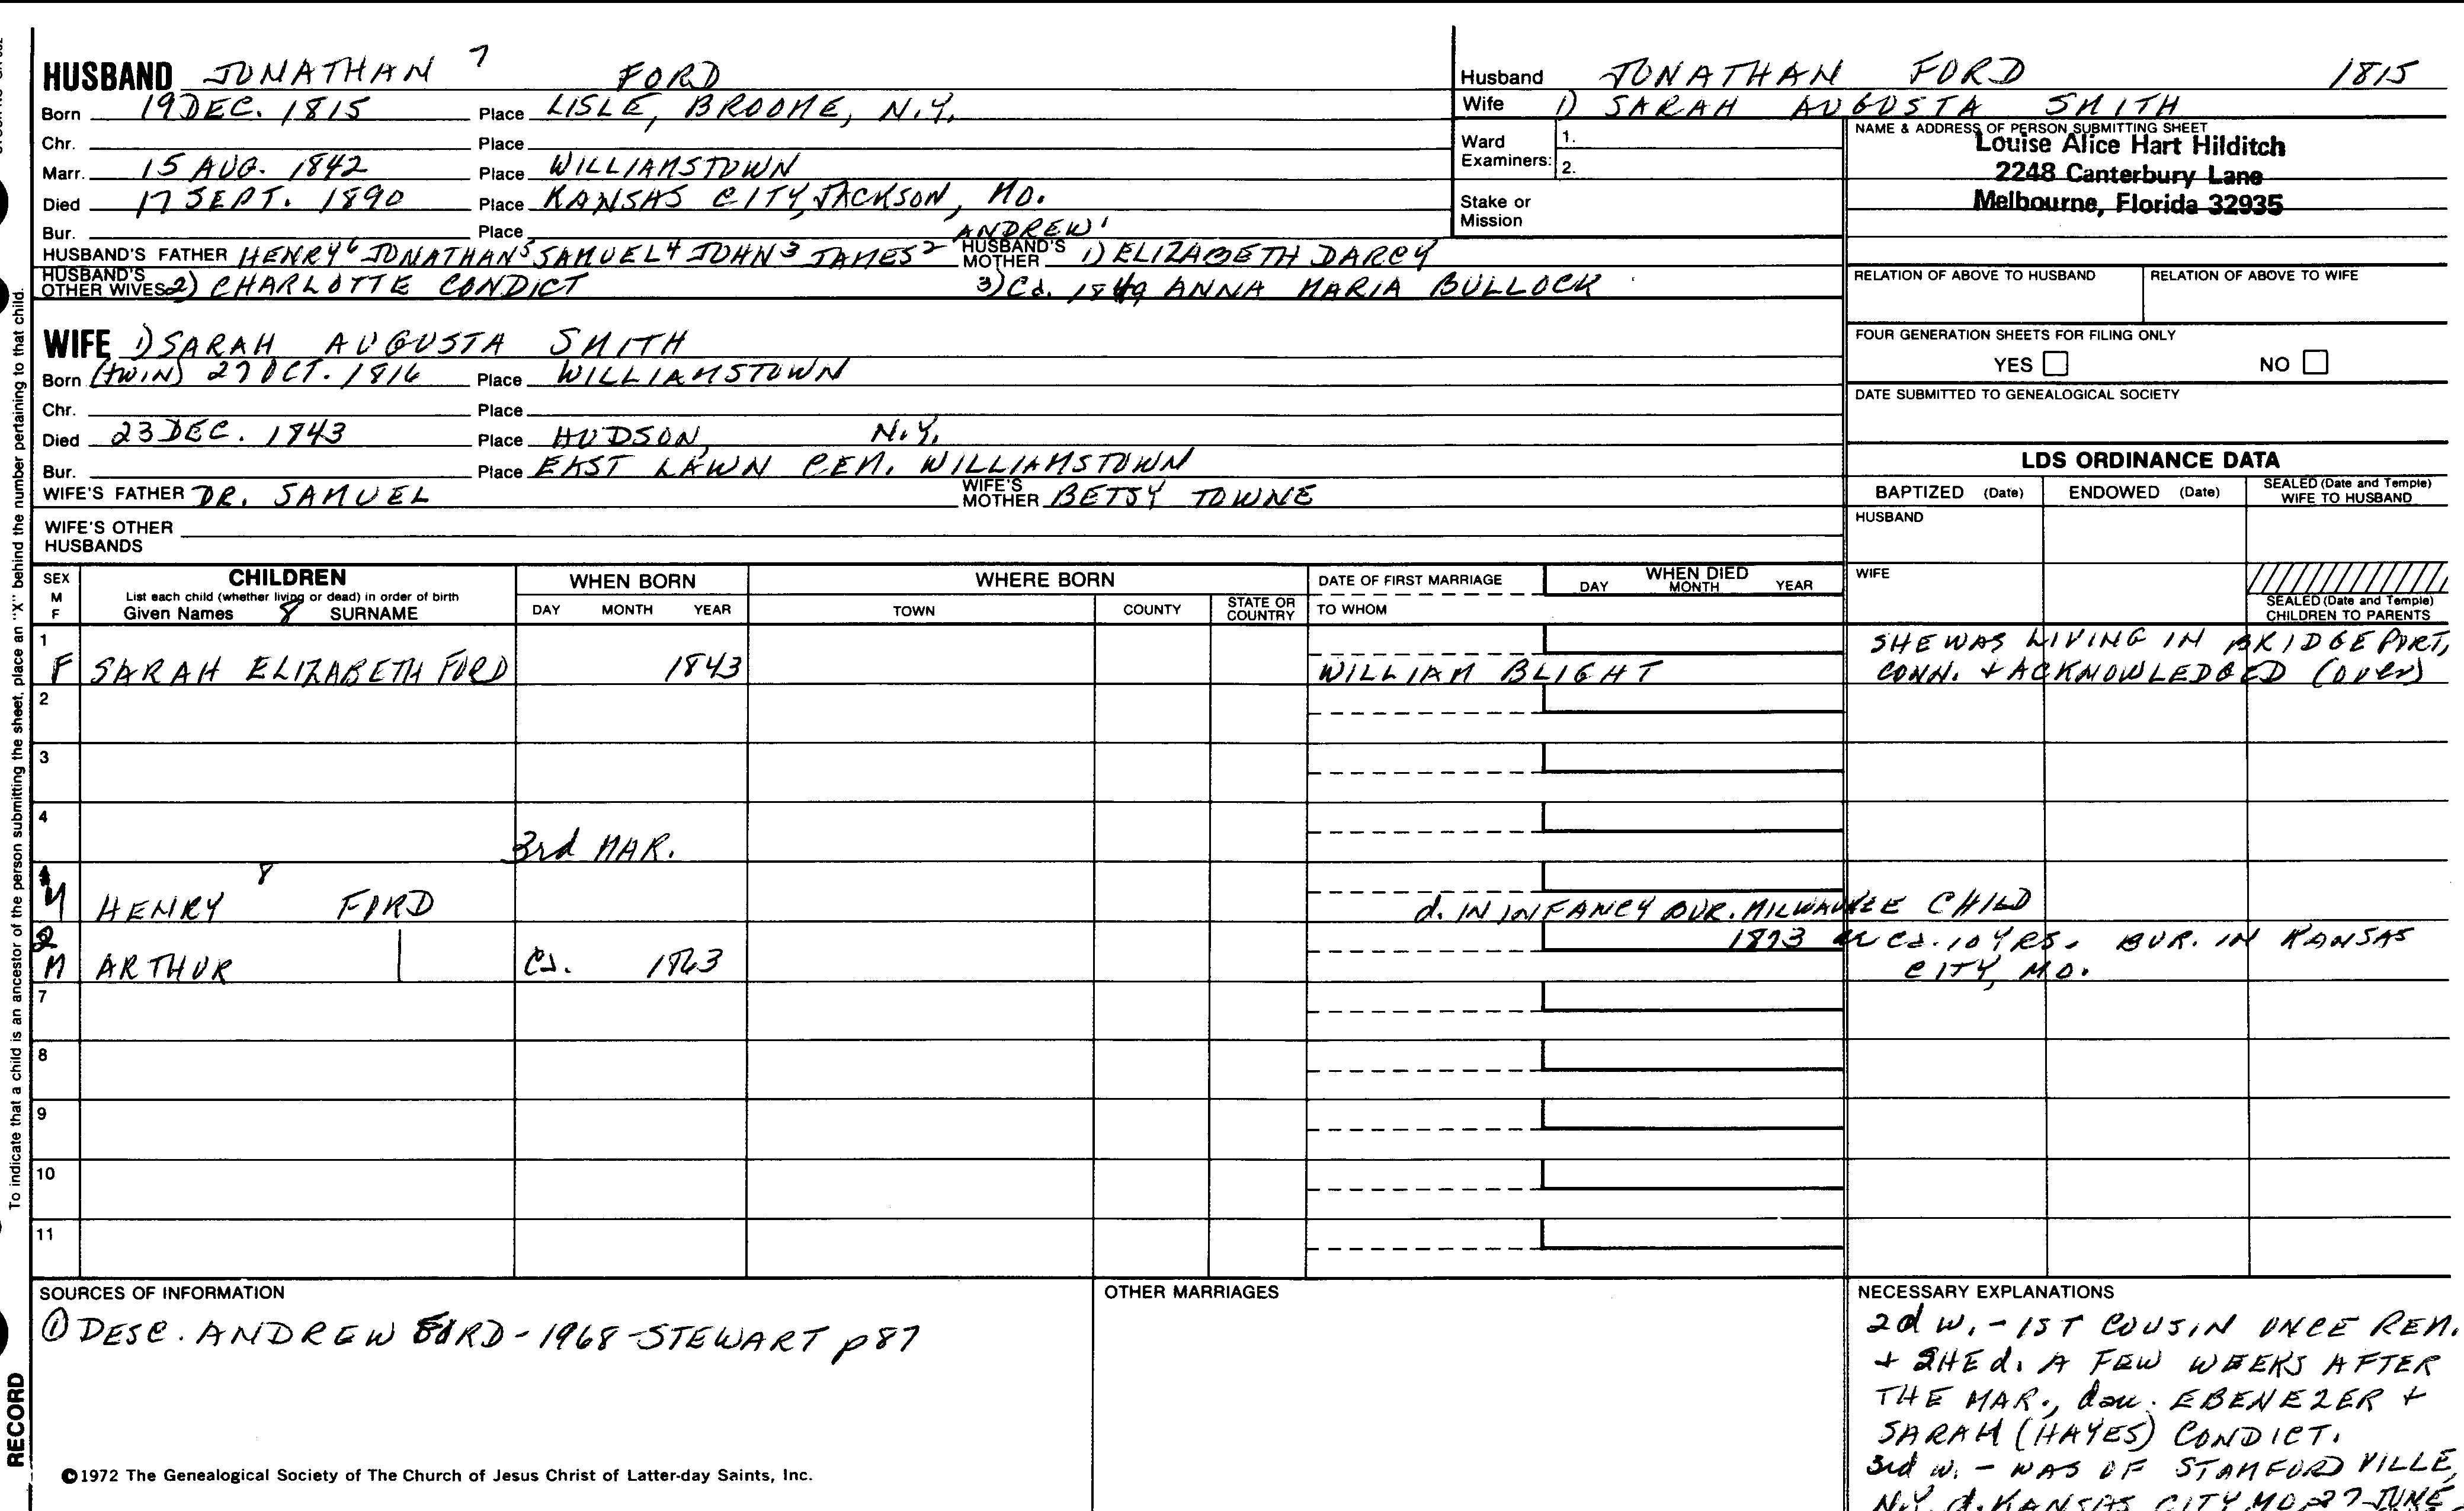 HUSBAND JONATHAN 7 FORD
Born 19 DEC. 1815 Place LISLE, BROOME, N.Y.
Chr. Place
Marr. 15 AUG. 1842 Place WILLIAMSTOWN
Died 17 SEPT. 1890 Place KANSAS CITY, JACKSON, MO.
Bur. Place ANDREW 1
HUSBAND'S FATHER HENRY 6 JONATHAN 5 SAMUEL 4 JOHN 3 JAMES 2 HUSBAND'S MOTHER 1) ELIZABETH DARCY
HUSBAND'S OTHER WIVES 2) CHARLOTTE CONDICT 3) Ca. 1849 ANNA MARIA BULLOCK
WIFE 1) SARAH AUGUSTA SMITH
Born (TWIN) 27 OCT. 1816 Place WILLIAMSTOWN
Chr. Place
Died 23 DEC. 1843 Place HUDSON, N.Y.
Bur. Place EAST LAWN CEM. WILLIAMSTOWN
WIFE'S FATHER DR. SAMUEL WIFE'S MOTHER BETSY TOWNE
WIFE'S OTHER HUSBANDS
Husband JONATHAN FORD 1815
Wife 1) SARAH AUGUSTA SMITH
Ward Examiners: 1.
2.
Stake or Mission
NAME & ADDRESS OF PERSON SUBMITTING SHEET
Louise Alice Hart Hilditch
2248 Canterbury Lane
Melbourne, Florida 32935
RELATION OF ABOVE TO HUSBAND RELATION OF ABOVE TO WIFE
FOUR GENERATION SHEETS FOR FILING ONLY
YES NO
DATE SUBMITTED TO GENEALOGICAL SOCIETY
LDS ORDINANCE DATA
BAPTIZED (Date) ENDOWED (Date) SEALED (Date and Temple) WIFE TO HUSBAND
HUSBAND
WIFE
SEALED (Date and Temple) CHILDREN TO PARENTS
SEX M F CHILDREN WHEN BORN WHERE BORN DATE OF FIRST MARRIAGE WHEN DIED
List each child (whether living or dead) in order of birth
Given Names 8 SURNAME DAY MONTH YEAR TOWN COUNTY STATE OR COUNTRY TO WHOM DAY MONTH YEAR
1 SHE WAS LIVING IN BRIDGEPORT,
F SARAH ELIZABETH FORD 1843 WILLIAM BLIGHT CONN. + ACKNOWLEDGED (over)
2
3
4
3rd MAR.
M HENRY 8 FORD d. IN INFANCY BUR. MILWAUKEE CHILD
2 1873 Ca. 10 YRS. BUR. IN KANSAS
M ARTHUR Ca. 1863 CITY, MO.
7
8
9
10
11
SOURCES OF INFORMATION
① DESC. ANDREW FORD - 1968 - STEWART p 87
©1972 The Genealogical Society of The Church of Jesus Christ of Latter-day Saints, Inc.
OTHER MARRIAGES
NECESSARY EXPLANATIONS
2d w. - 1ST COUSIN ONCE REM.
+ SHE d. A FEW WEEKS AFTER
THE MAR., dau. EBENEZER +
SARAH (HAYES) CONDICT.
3rd w. - WAS OF STAMFORDVILLE,
N.Y. d. KANSAS CITY, MO. 27 JUNE
To indicate that a child is an ancestor of the person submitting the sheet, place an "X" behind the number pertaining to that child.
RECORD